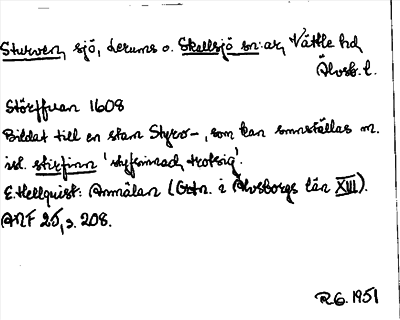 Sturven, sjö, Lerums o. Skallsjö sn:ar, Vättle hd,
Älvsb. l.
Störffuan 1608
Bildat till en stam Styrv-, som kan sammanställas m.
isl. stirfinn 'styvsinnad, trotsig'.
E. Hellquist: Anmälan (Ortn. i Älvsborgs län XIII).
ANF 25, s. 208.
R.G. 1951